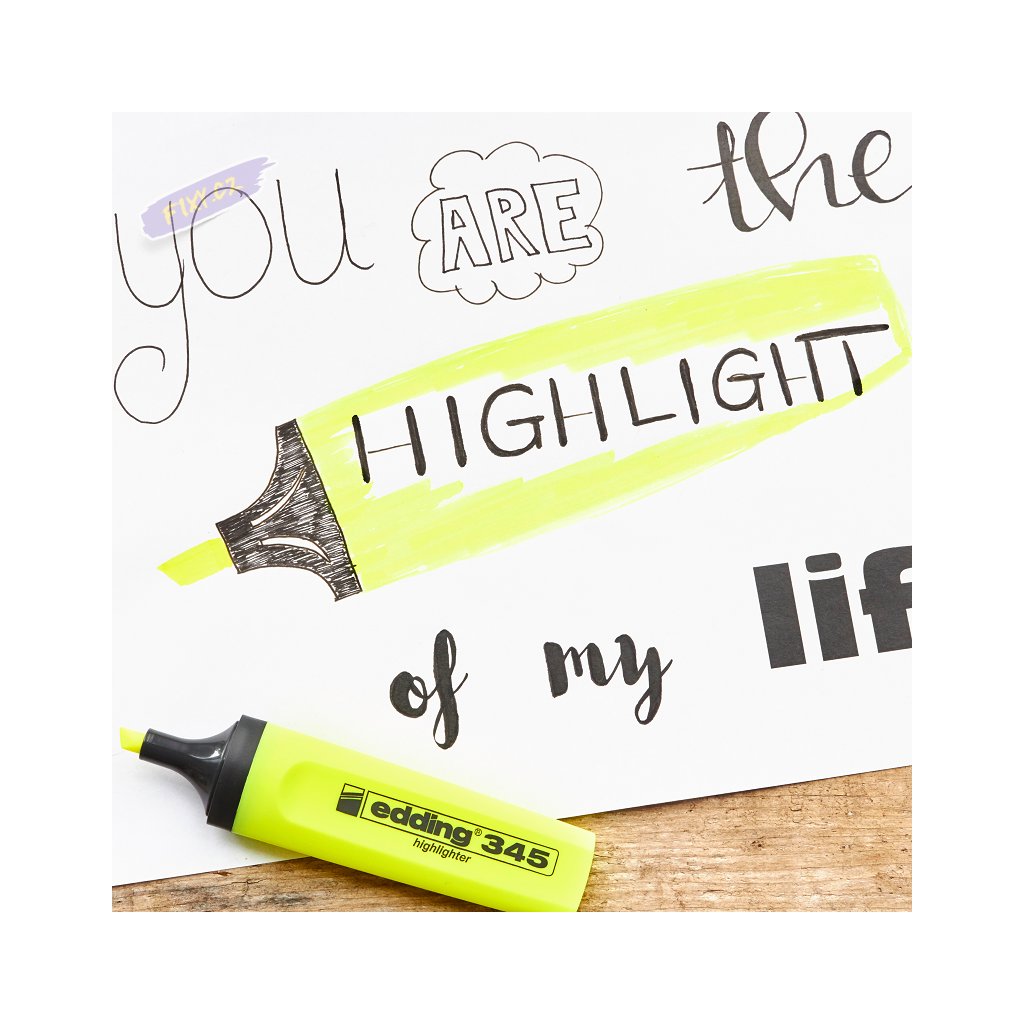 you ARE the
FIXY.CZ
HIGHLIGHT
of my lif
edding® 345
highlighter